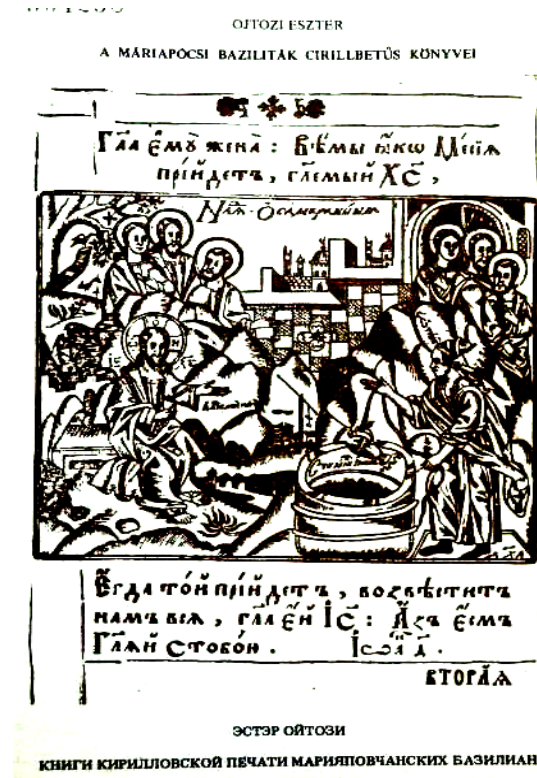 OJTOZI ESZTER
A MÁRIAPÓCSI BAZILITÁK CIRILLBETŰS KÖNYVEI
Гл҃а є҆мꙋ̀ жена̀ : Вѣ́мы ꙗ҆́кѡ Месі́ѧ
прїи́детъ , гл҃емый Хс҃ ,
Нєⷣ. Ѡ҆ самарѧныни
Егда̀ то́й прїи́детъ , возвѣсти́тъ
намъ всѧ̀ , гл҃а є҆́й Іс҃ : А҆́зъ є҆́смь
Гл҃ѧй съ тобо́й . І҆ѡа́ д҃ .
ВТОРА́Ѧ
ЭСТЭР ОЙТОЗИ
КНИГИ КИРИЛЛОВСКОЙ ПЕЧАТИ МАРИЯПОВЧАНСКИХ БАЗИЛИАН